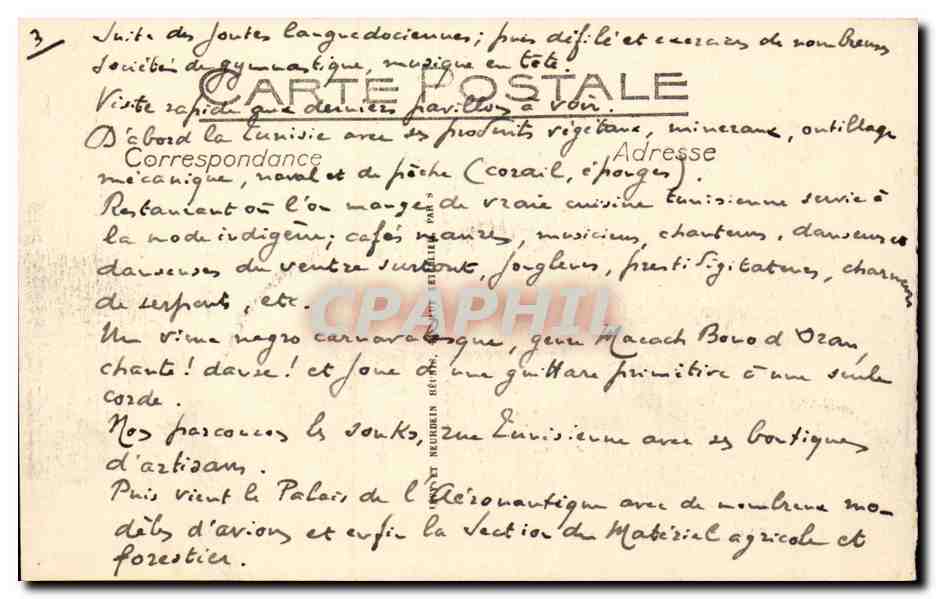 3
Suite des joutes languedociennes; puis défilé et exercices de nombreuses
sociétés de gymnastique, musique en tête.
CARTE POSTALE
Visite rapide aux derniers pavillons à voir.
D'abord la Tunisie avec ses produits végétaux, minéraux, outillage
Correspondance
Adresse
mécanique, naval et de pêche (corail, éponges).
Restaurant où l'on mange de vraie cuisine tunisienne servie à
la mode indigène; cafés maures, musiciens, chanteurs, danseurs et
danseuses du ventre surtout, jongleurs, prestidigitateurs, charmeurs
de serpents, etc.
CPAPHIL
Un vieux negro carnavalesque, genre Macach Bono d'Oran,
chante! danse! et joue d'une guittare primitive à une seule
corde.
Nous parcourons les souks, rue Tunisienne avec ses boutiques
d'artisans.
Puis vient le Palais de l'Aéronautique avec de nombreux mo-
dèles d'avions et enfin la Section du Matériel agricole et
forestier.
ET NEURDEIN RÉUNIS, PARIS